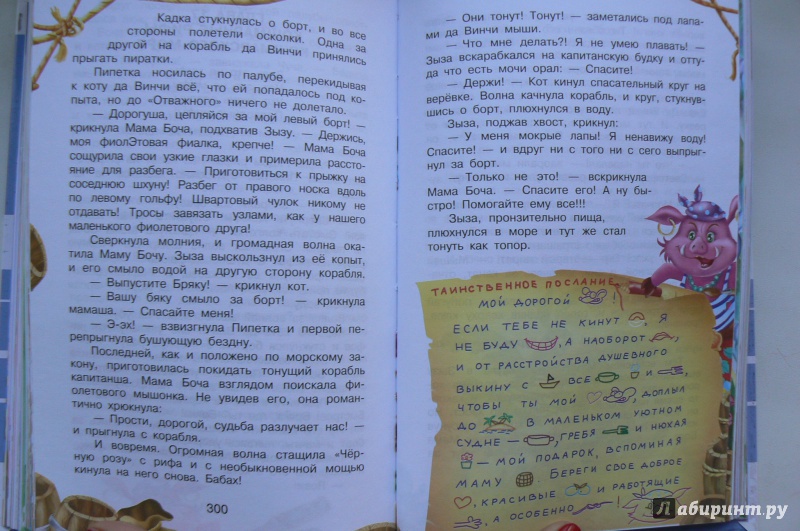 Кадка стукнулась о борт, и во все
стороны полетели осколки. Одна за
другой на корабль да Винчи принялись
прыгать пиратки.
Пипетка носилась по палубе, перекидывая
к коту да Винчи всё, что ей попадалось под ко-
пыта, но до «Отважного» ничего не долетало.
— Дорогуша, цепляйся за мой левый борт! —
крикнула Мама Боча, подхватив Зызу. — Держись,
моя фиолЭтовая фиалка, крепче! — Мама Боча
сощурила свои узкие глазки и примерила расстоя-
ние для разбега. — Приготовиться к прыжку на
соседнюю шхуну! Разбег от правого носка вдоль
по левому гольфу! Швартовый чулок никому не
отдавать! Тросы завязать узлами, как у нашего
маленького фиолетового друга!
Сверкнула молния, и громадная волна ока-
тила Маму Бочу. Зыза выскользнул из её копыт,
и его смыло водой на другую сторону корабля.
— Выпустите Бряку! — крикнул кот.
— Вашу бяку смыло за борт! — крикнула
мамаша. — Спасайте меня!
— Э-эх! — взвизгнула Пипетка и первой пе-
репрыгнула бушующую бездну.
Последней, как и положено по морскому за-
кону, приготовилась покидать тонущий корабль
капитанша. Мама Боча взглядом поискала фи-
олетового мышонка. Не увидев его, она роман-
тично хрюкнула:
— Прости, дорогой, судьба разлучает нас! —
и прыгнула с корабля.
И вовремя. Огромная волна стащила «Чёр-
ную розу» с рифа и с необыкновенной мощью
кинула на него снова. Бабах!
300
— Они тонут! Тонут! — заметались под лапа-
ми да Винчи мыши.
— Что мне делать?! Я не умею плавать! —
Зыза вскарабкался на капитанскую будку и отту-
да что есть мочи орал: — Спасите!
— Держи! — Кот кинул спасательный круг на
верёвке. Волна качнула корабль, и круг, стукнув-
шись о борт, плюхнулся в воду.
Зыза, поджав хвост, крикнул:
— У меня мокрые лапы! Я ненавижу воду!
Спасите! — и вдруг ни с того ни с сего выпрыг-
нул за борт.
— Только не это! — вскрикнула
Мама Боча. — Спасите его! А ну бы-
стро! Помогайте ему все!!!
Зыза, пронзительно пища,
плюхнулся в море и тут же стал
тонуть как топор.
ТАИНСТВЕННОЕ ПОСЛАНИЕ
МОЙ ДОРОГОЙ !
ЕСЛИ ТЕБЕ НЕ КИНУТ , Я
НЕ БУДУ , А НАОБОРОТ ,
И ОТ РАССТРОЙСТВА ДУШЕВНОГО
ВЫКИНУ С ВСЕ И ,
ЧТОБЫ ТЫ МОЙ , ДОПЛЫЛ
ДО В МАЛЕНЬКОМ УЮТНОМ
СУДНЕ — , ГРЕБЯ И НЮХАЯ
— МОЙ ПОДАРОК, ВСПОМИНАЯ
МАМУ . БЕРЕГИ СВОЕ ДОБРОЕ
, КРАСИВЫЕ И РАБОТЯЩИЕ
, А ОСОБЕННО !
Лабиринт.ру